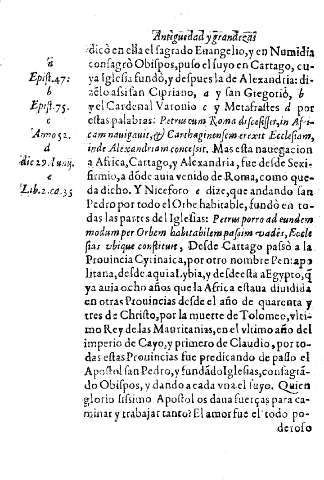 Antiguedad y grandezas
dicò en ella el sagrado Euangelio, y en Numidia
consagrò Obispos, puso el suyo en Cartago, cu-
ya Iglesia fundò, y despues la de Alexandria: di-
zelo assi san Cipriano, a y san Gregorio, b
y el Cardenal Varonio c y Metafrastes d por
estas palabras: Petrus cum Roma discessisset, in Afri-
cam nauigauit, & Carthaginensem erexit Ecclesiam,
inde Alexandriam concessit. Mas esta nauegacion
a Africa, Cartago, y Alexandria, fue desde Sexi-
firmio, a dõde auia venido de Roma, como que-
da dicho. Y Niceforo e dize, que andando san
Pedro por todo el Orbe habitable, fundò en to-
das las partes del Iglesias: Petrus porro ad eundem
modum per Orbem habitabilem passim vadēs, Eccle
sias vbique constituit, Desde Cartago passò a la
Prouincia Cyrinaica, por otro nombre Pentapo
litana, desde aqui a Lybia, y desde esta a Egypto, q̃
ya auia ocho años que la Africa estaua diuidida
en otras Prouincias desde el año de quarenta y
tres de Christo, por la muerte de Tolomeo, vlti-
mo Rey de las Mauritanias, en el vltimo año del
imperio de Cayo, y primero de Claudio, por to-
das estas Prouincias fue predicando de passo el
Apostol san Pedro, y fundãdo Iglesias, consagrã-
do Obispos, y dando a cada vna el suyo. Quien
glorio sissimo Apostol os daua fuerças para ca-
minar y trabajar tanto? El amor fue el todo po-
deroso
a
Epist. 47:
b
Epist. 75.
c
Anno 52.
d
die 29. Iunij.
e
Lib. 2. ca. 35